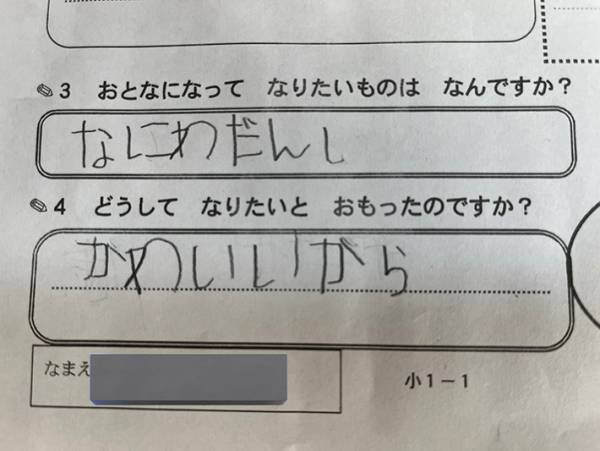 3 おとなになって なりたいものは なんですか?
なにわだんし
4 どうして なりたいと おもったのですか?
かわいいから
なまえ
小1-1